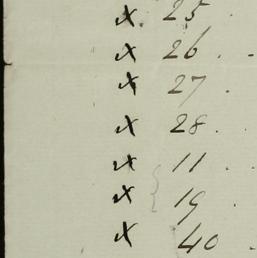 x 25 .
x 26 . -
x 27 .
x 28 .
x 11 . .
x 19 .
x 40 .